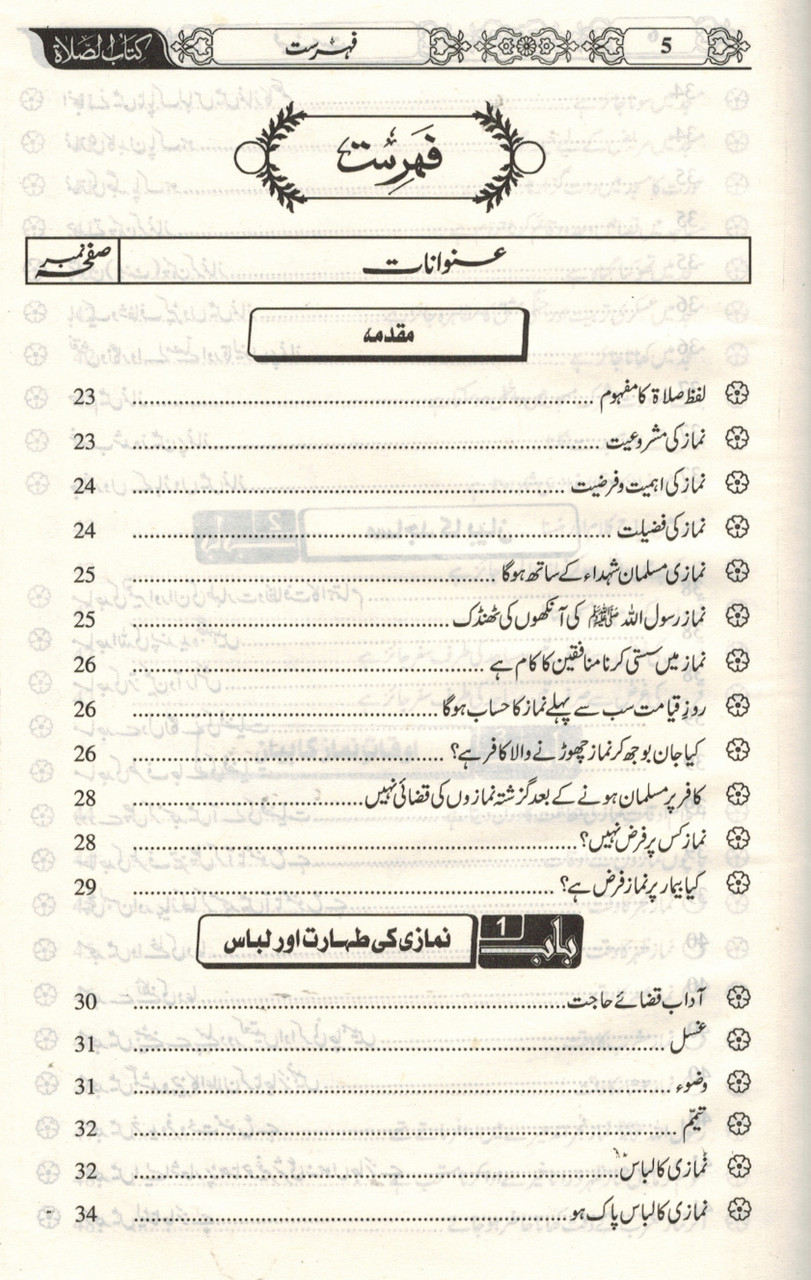 5 فہرست کتاب الصلاۃ
فہرست
عنوانات صفحہ نمبر
مقدمہ
لفظ صلاۃ کا مفہوم 23
نماز کی مشروعیت 23
نماز کی اہمیت و فرضیت 24
نماز کی فضیلت 24
نمازی مسلمان شہداء کے ساتھ ہو گا 25
نماز رسول اللہ ﷺ کی آنکھوں کی ٹھنڈک 25
نماز میں سستی کرنا منافقین کا کام ہے 26
روزِ قیامت سب سے پہلے نماز کا حساب ہو گا 26
کیا جان بوجھ کر نماز چھوڑنے والا کافر ہے؟ 26
کافر پر مسلمان ہونے کے بعد گزشتہ نمازوں کی قضائی نہیں 28
نماز کس پر فرض نہیں؟ 28
کیا بیمار پر نماز فرض ہے؟ 29
باب 1 نمازی کی طہارت اور لباس
آداب قضائے حاجت 30
غسل 31
وضوء 31
تیمّم 32
نمازی کا لباس 32
نمازی کا لباس پاک ہو 34